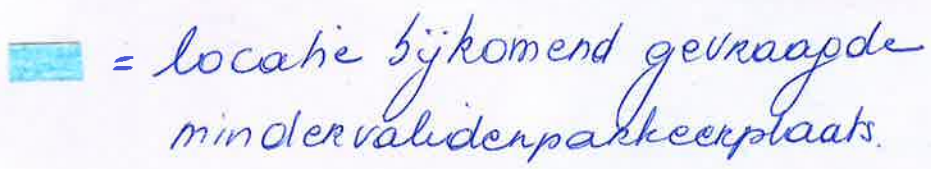 = locatie bijkomend gevraagde
mindervalidenparkeerplaats.